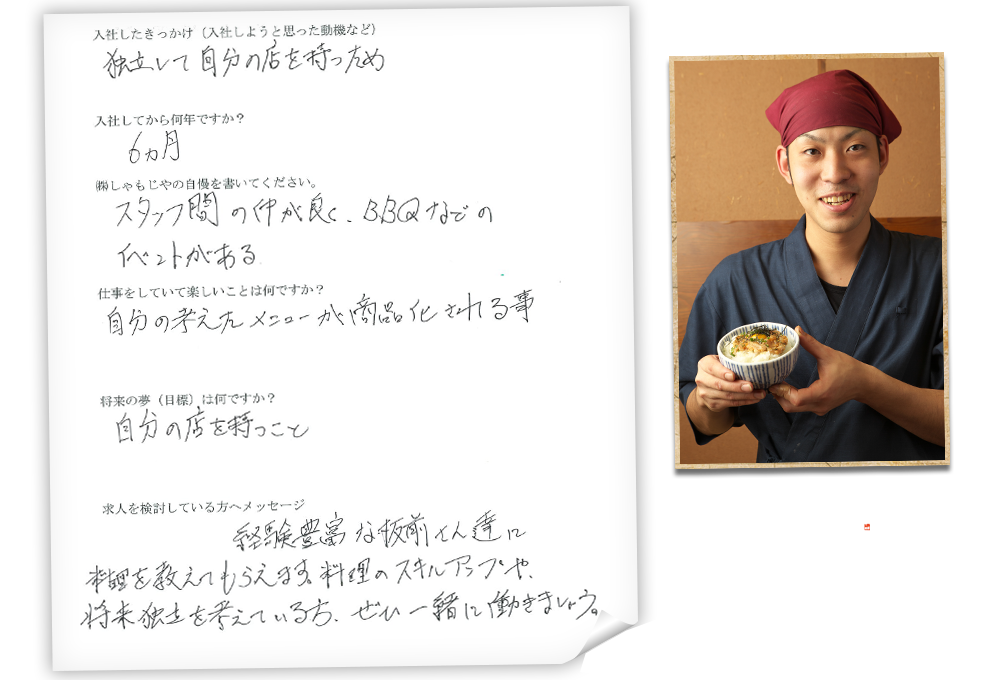 入社したきっかけ（入社しようと思った動機など）
独立して自分の店を持つため
入社してから何年ですか？
6ヵ月
㈱しゃもじやの自慢を書いてください。
スタッフ間の仲が良く、BBQなどの
イベントがある
仕事をしていて楽しいことは何ですか？
自分の考えたメニューが商品化される事
将来の夢（目標）は何ですか？
自分の店を持つこと
求人を検討している方へメッセージ
経験豊富な板前さん達に
料理を教えてもらえます。料理のスキルアップや、
将来独立を考えている方、ぜひ一緒に働きましょう。